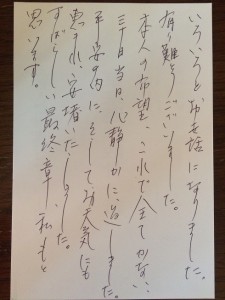 いろいろとお世話になりました。
有り難うございました。
本人の希望、これで全てかない、
三十日当日、心静かに送りました。
平安の内に、そしてお天気にも
恵まれ、安堵いたしました。
すばらしい最終章、私もと
思います。